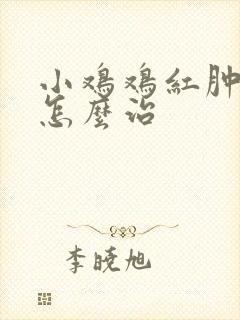 小鸡鸡红肿
怎麼治
李晓旭